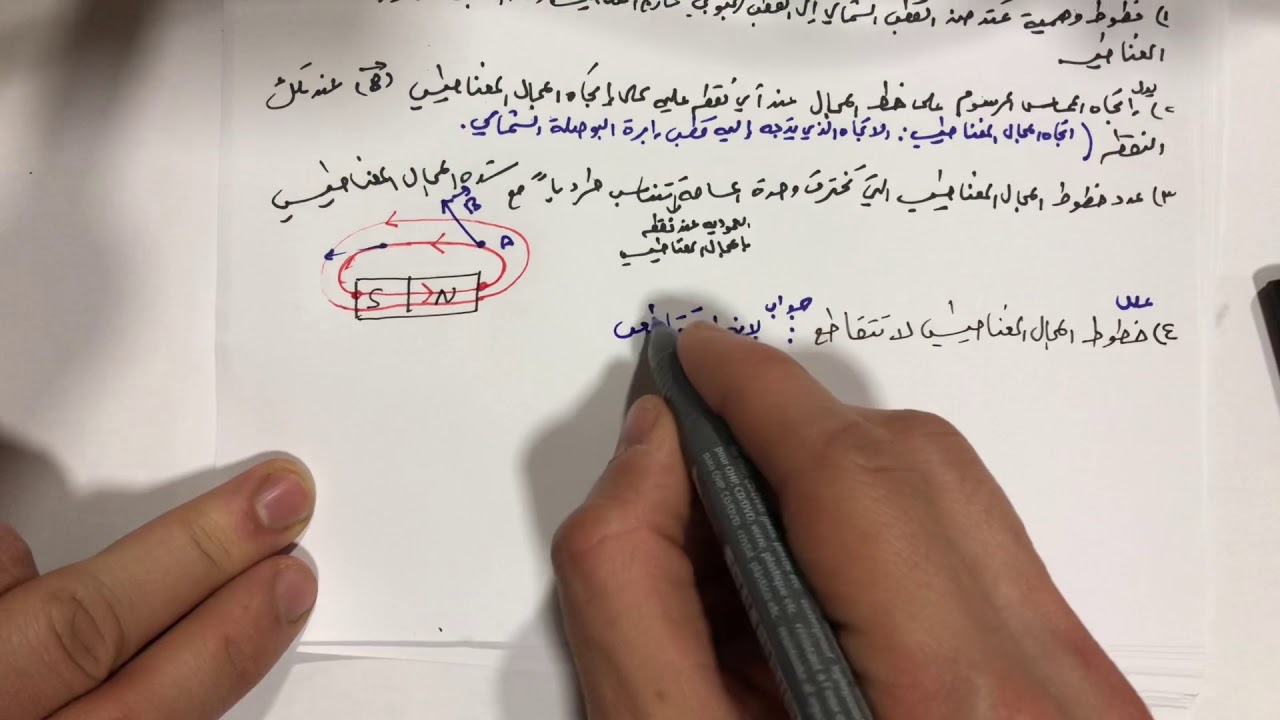 ١) خطوط وهمية تمتد من القطب الشمالي إلى القطب الجنوبي خارج
المغناطيس
يدل
٢) إتجاه المماس المرسوم على خط المجال عند أي نقطه عليه على إتجاه المجال المغناطيسي (B) عند تلك
النقطه (اتجاه المجال المغناطيسي: الاتجاه الذي يتجه إليه قطب إبرة البوصلة الشمالي.
٣) عدد خطوط المجال المغناطيسي التي تخترق وحدة المساحة تتناسب طرديا مع شدة المجال المغناطيسي
العموديه عند نقطه
بالمجال المغناطيسي
B
A
S N
علل
جواب
٤) خطوط المجال المغناطيسي لا تتقاطع :